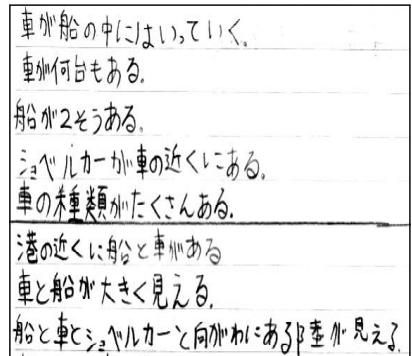 車が船の中にはいっていく。
車が何台もある。
船が2そうある。
ショベルカーが車の近くにある。
車の種類がたくさんある。
港の近くに船と車がある
車と船が大きく見える。
船と車とショベルカーと向がわにある陸が見える